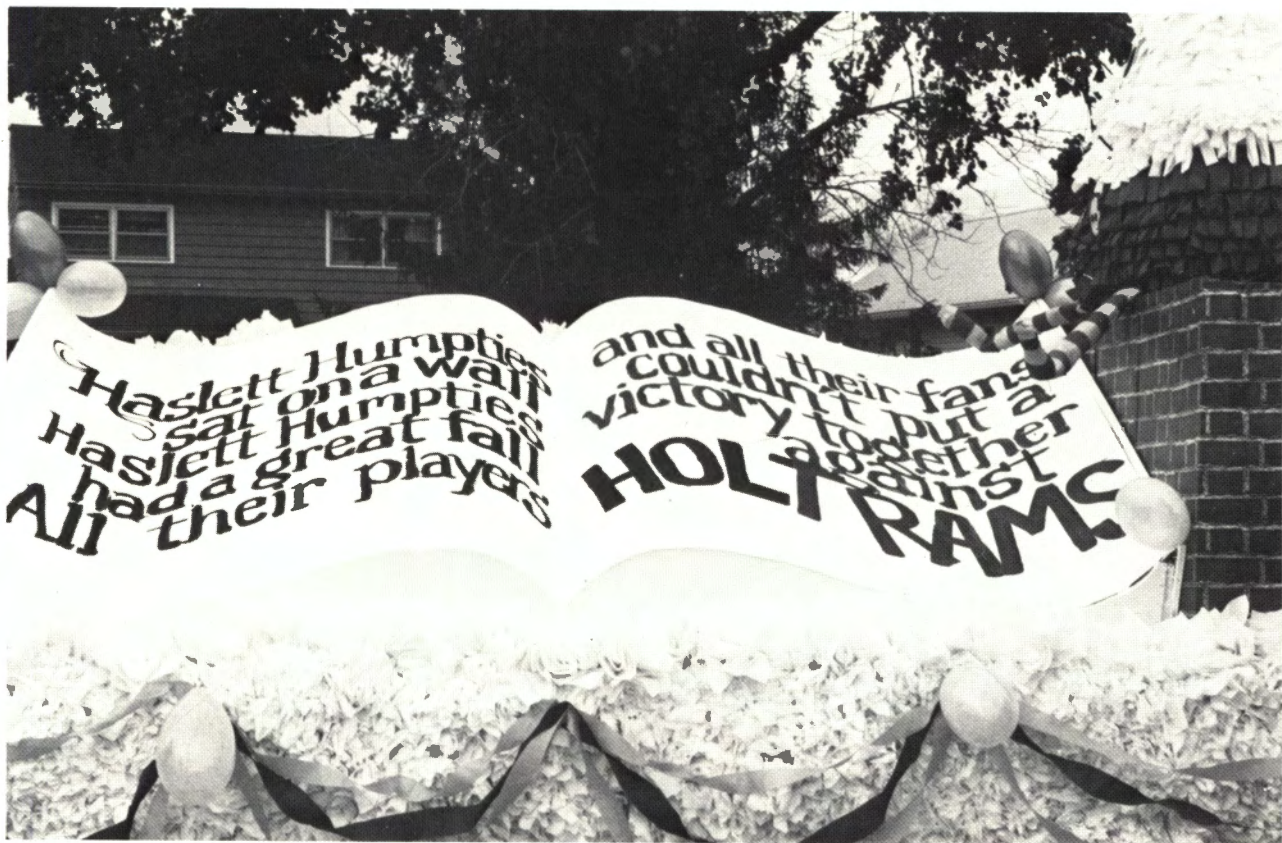 Haslett Humpties
sat on a wall
Haslett Humpties
had a great fall
All their players
and all their fans
couldn't put a
victory together
against
HOLT RAMS